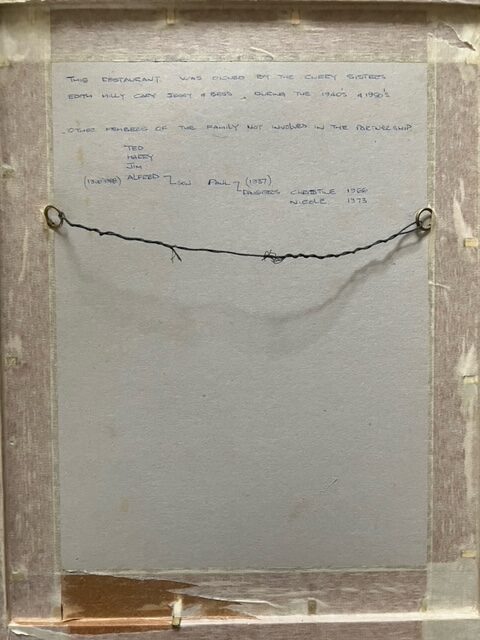 THIS RESTAURANT WAS OWNED BY THE SISTERS
EDITH MILLY JESSY & BESS . DURING THE 1940'S & 1950'S
OTHER MEMBERS OF THE FAMILY NOT INVOLVED IN THE PARTNERSHIP
TED
HARRY
JIM
ALFRED SON PAUL (1937)
DAUGHTERS CHRISTINE 1966
NICOLE 1973